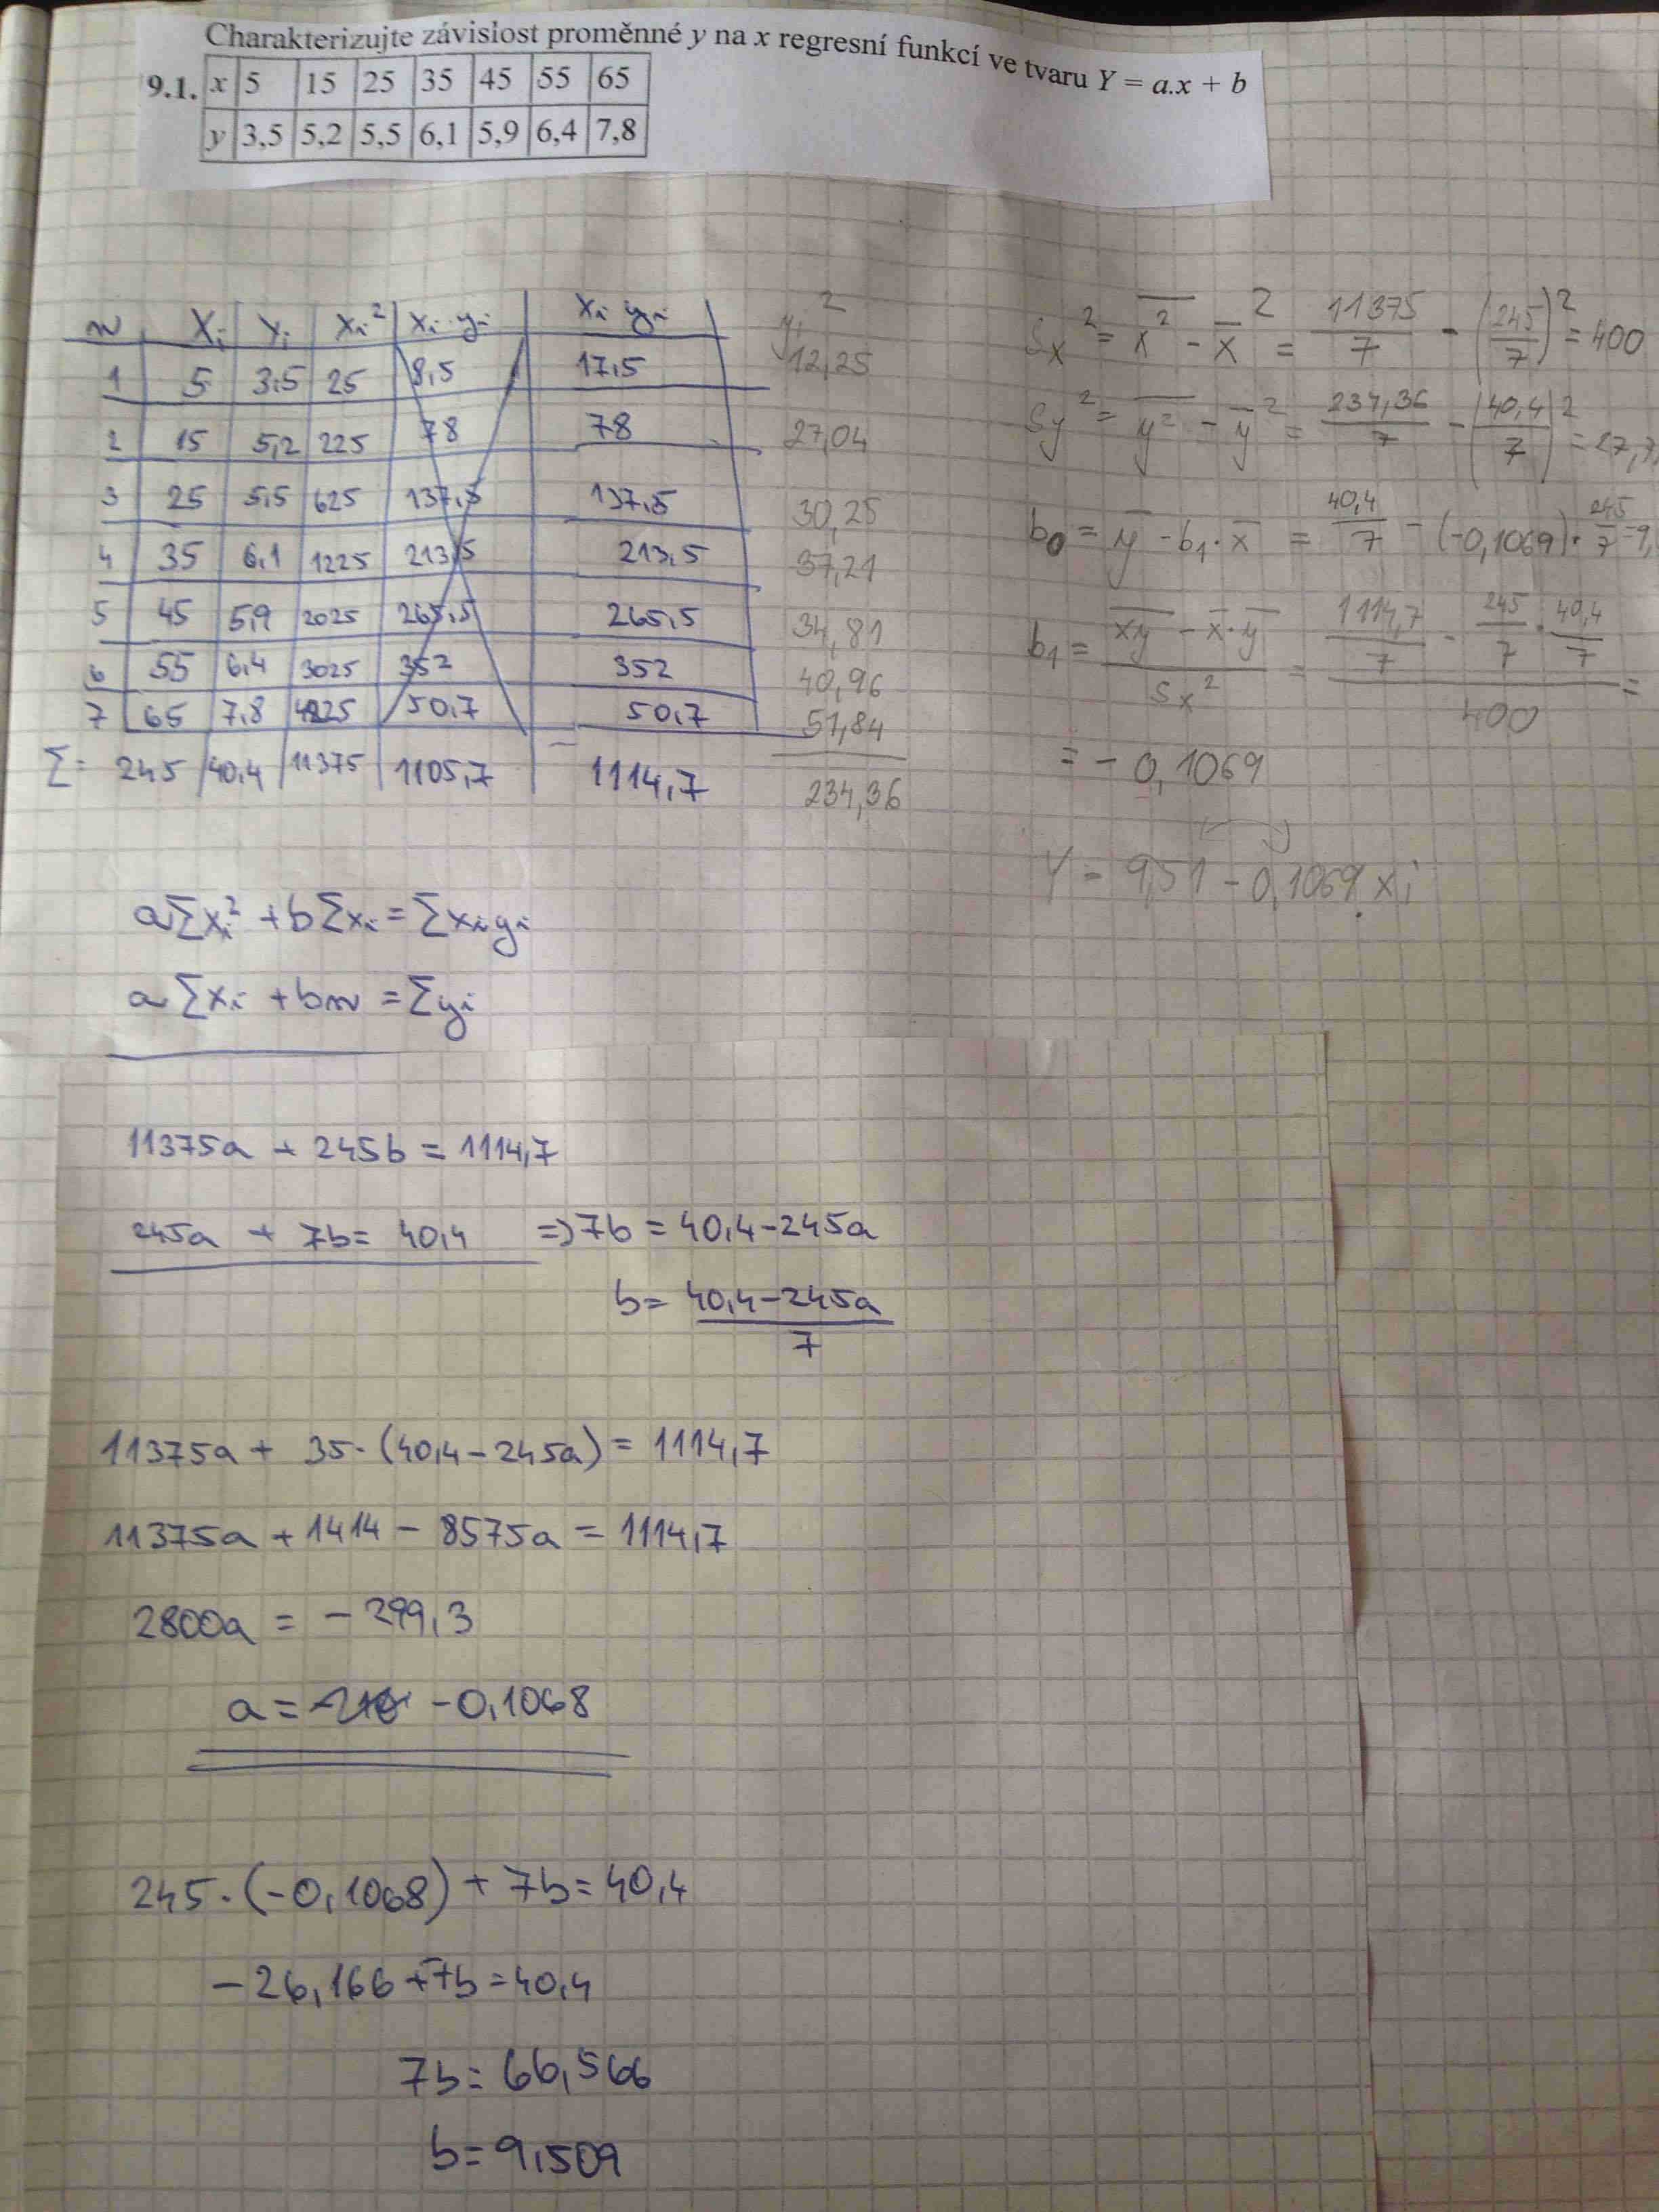 Charakterizujte závislost proměnné y na x regresní funkcí ve tvaru Y = a.x + b
9.1. x 5 15 25 35 45 55 65
y 3,5 5,2 5,5 6,1 5,9 6,4 7,8
n xi yi xi² xi·yi xi yi yi²
1 5 3,5 25 8,5 17,5 12,25
2 15 5,2 225 78 78 27,04
3 25 5,5 625 137,5 137,5 30,25
4 35 6,1 1225 213,5 213,5 37,21
5 45 5,9 2025 265,5 265,5 34,81
6 55 6,4 3025 352 352 40,96
7 65 7,8 4225 50,7 50,7 51,84
Σ= 245 40,4 11375 1105,7 1114,7 234,36
Sx² = x̄² - x̄² = 11375/7 - (245/7)² = 400
Sy² = y̅² - y̅² = 234,36/7 - (40,4/7)² = 27,7
b0 = y̅ - b1·x̄ = 40,4/7 - (-0,1069)·245/7 = 9,
b1 = (x̅y̅ - x̄·y̅)/Sx² = (1114,7/7 - 245/7·40,4/7)/400 =
= -0,1069
Y = 9,51 - 0,1069·xi
aΣxi² + bΣxi = Σxiyi
aΣxi + bn = Σyi
11375a + 245b = 1114,7
245a + 7b = 40,4 => 7b = 40,4 - 245a
b = (40,4 - 245a)/7
11375a + 35·(40,4 - 245a) = 1114,7
11375a + 1414 - 8575a = 1114,7
2800a = -299,3
a = -0,1068
245·(-0,1068) + 7b = 40,4
-26,166 + 7b = 40,4
7b = 66,566
b = 9,509